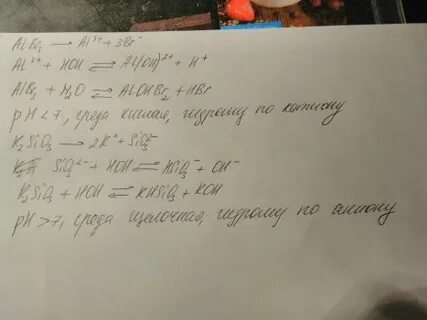 AlBr₃ → Al³⁺ + 3Br⁻
Al³⁺ + HOH ⇌ Al(OH)²⁺ + H⁺
AlBr₃ + H₂O ⇌ AlOHBr₂ + HBr
pH < 7, среда кислая, гидролиз по катиону
K₂SiO₃ → 2K⁺ + SiO₃²⁻
SiO₃²⁻ + HOH ⇌ HSiO₃⁻ + OH⁻
K₂SiO₃ + HOH ⇌ KHSiO₃ + KOH
pH > 7, среда щелочная, гидролиз по аниону